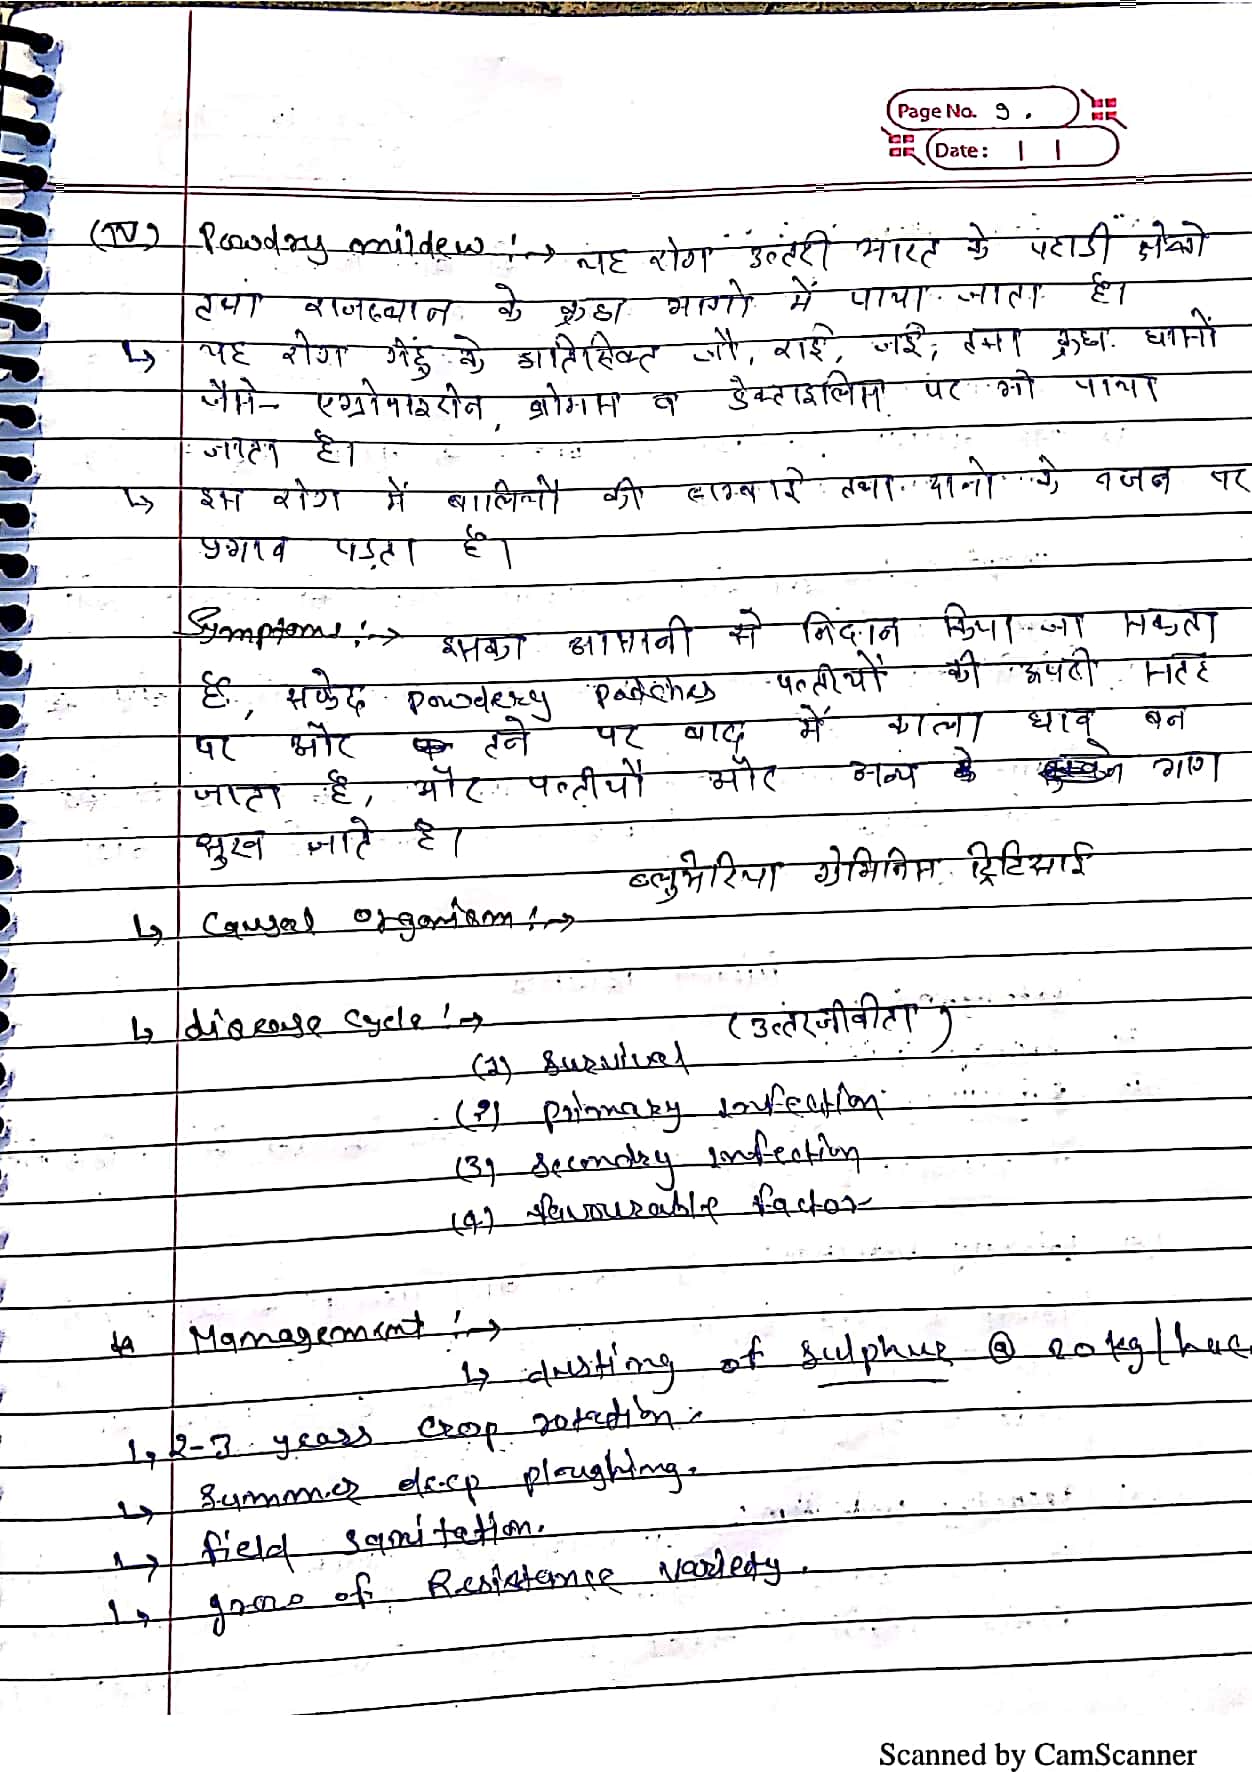 Page No. 9.
Date: | |
(IV) Powdry mildew :→ यह रोग उत्तरी भारत के पहाडी क्षेत्रो
तथा राजस्थान के कुछ भागो में पाया जाता है।
↳ यह रोग गेंहु के अतिरिक्त जौ, राई, जई, तथा कुछ घासों
जैसे- एग्रोपाइरोन, ब्रोमस व डेक्टाइलिस पर भी पाया
जाता है।
↳ इस रोग में बालियों की लम्बाई तथा दानो के वजन पर
प्रभाव पड़ता है।
Symptoms :→ इसका आसानी से निदान किया जा सकता
है, सफेद powdery patches पत्तीयों की ऊपरी सतह
पर और तने पर बाद में काला धाव बन
जाता है, और पत्तीयों और अन्य भाग
सुख जाते है।
ब्लुमेरिया ग्रेमिनिस ट्रिटिसाई
↳ Causal organism :→
↳ disease cycle :→ (उत्तरजीवीता)
(1) Survival
(2) primary infection
(3) secondry infection
(4) favourable factor
Management :→
↳ dusting of sulphur @ 20 kg/hec.
↳ 2-3 years crop rotection.
↳ summer deep ploughing.
↳ field sanitation.
↳ grow of Resistance variety.
Scanned by CamScanner